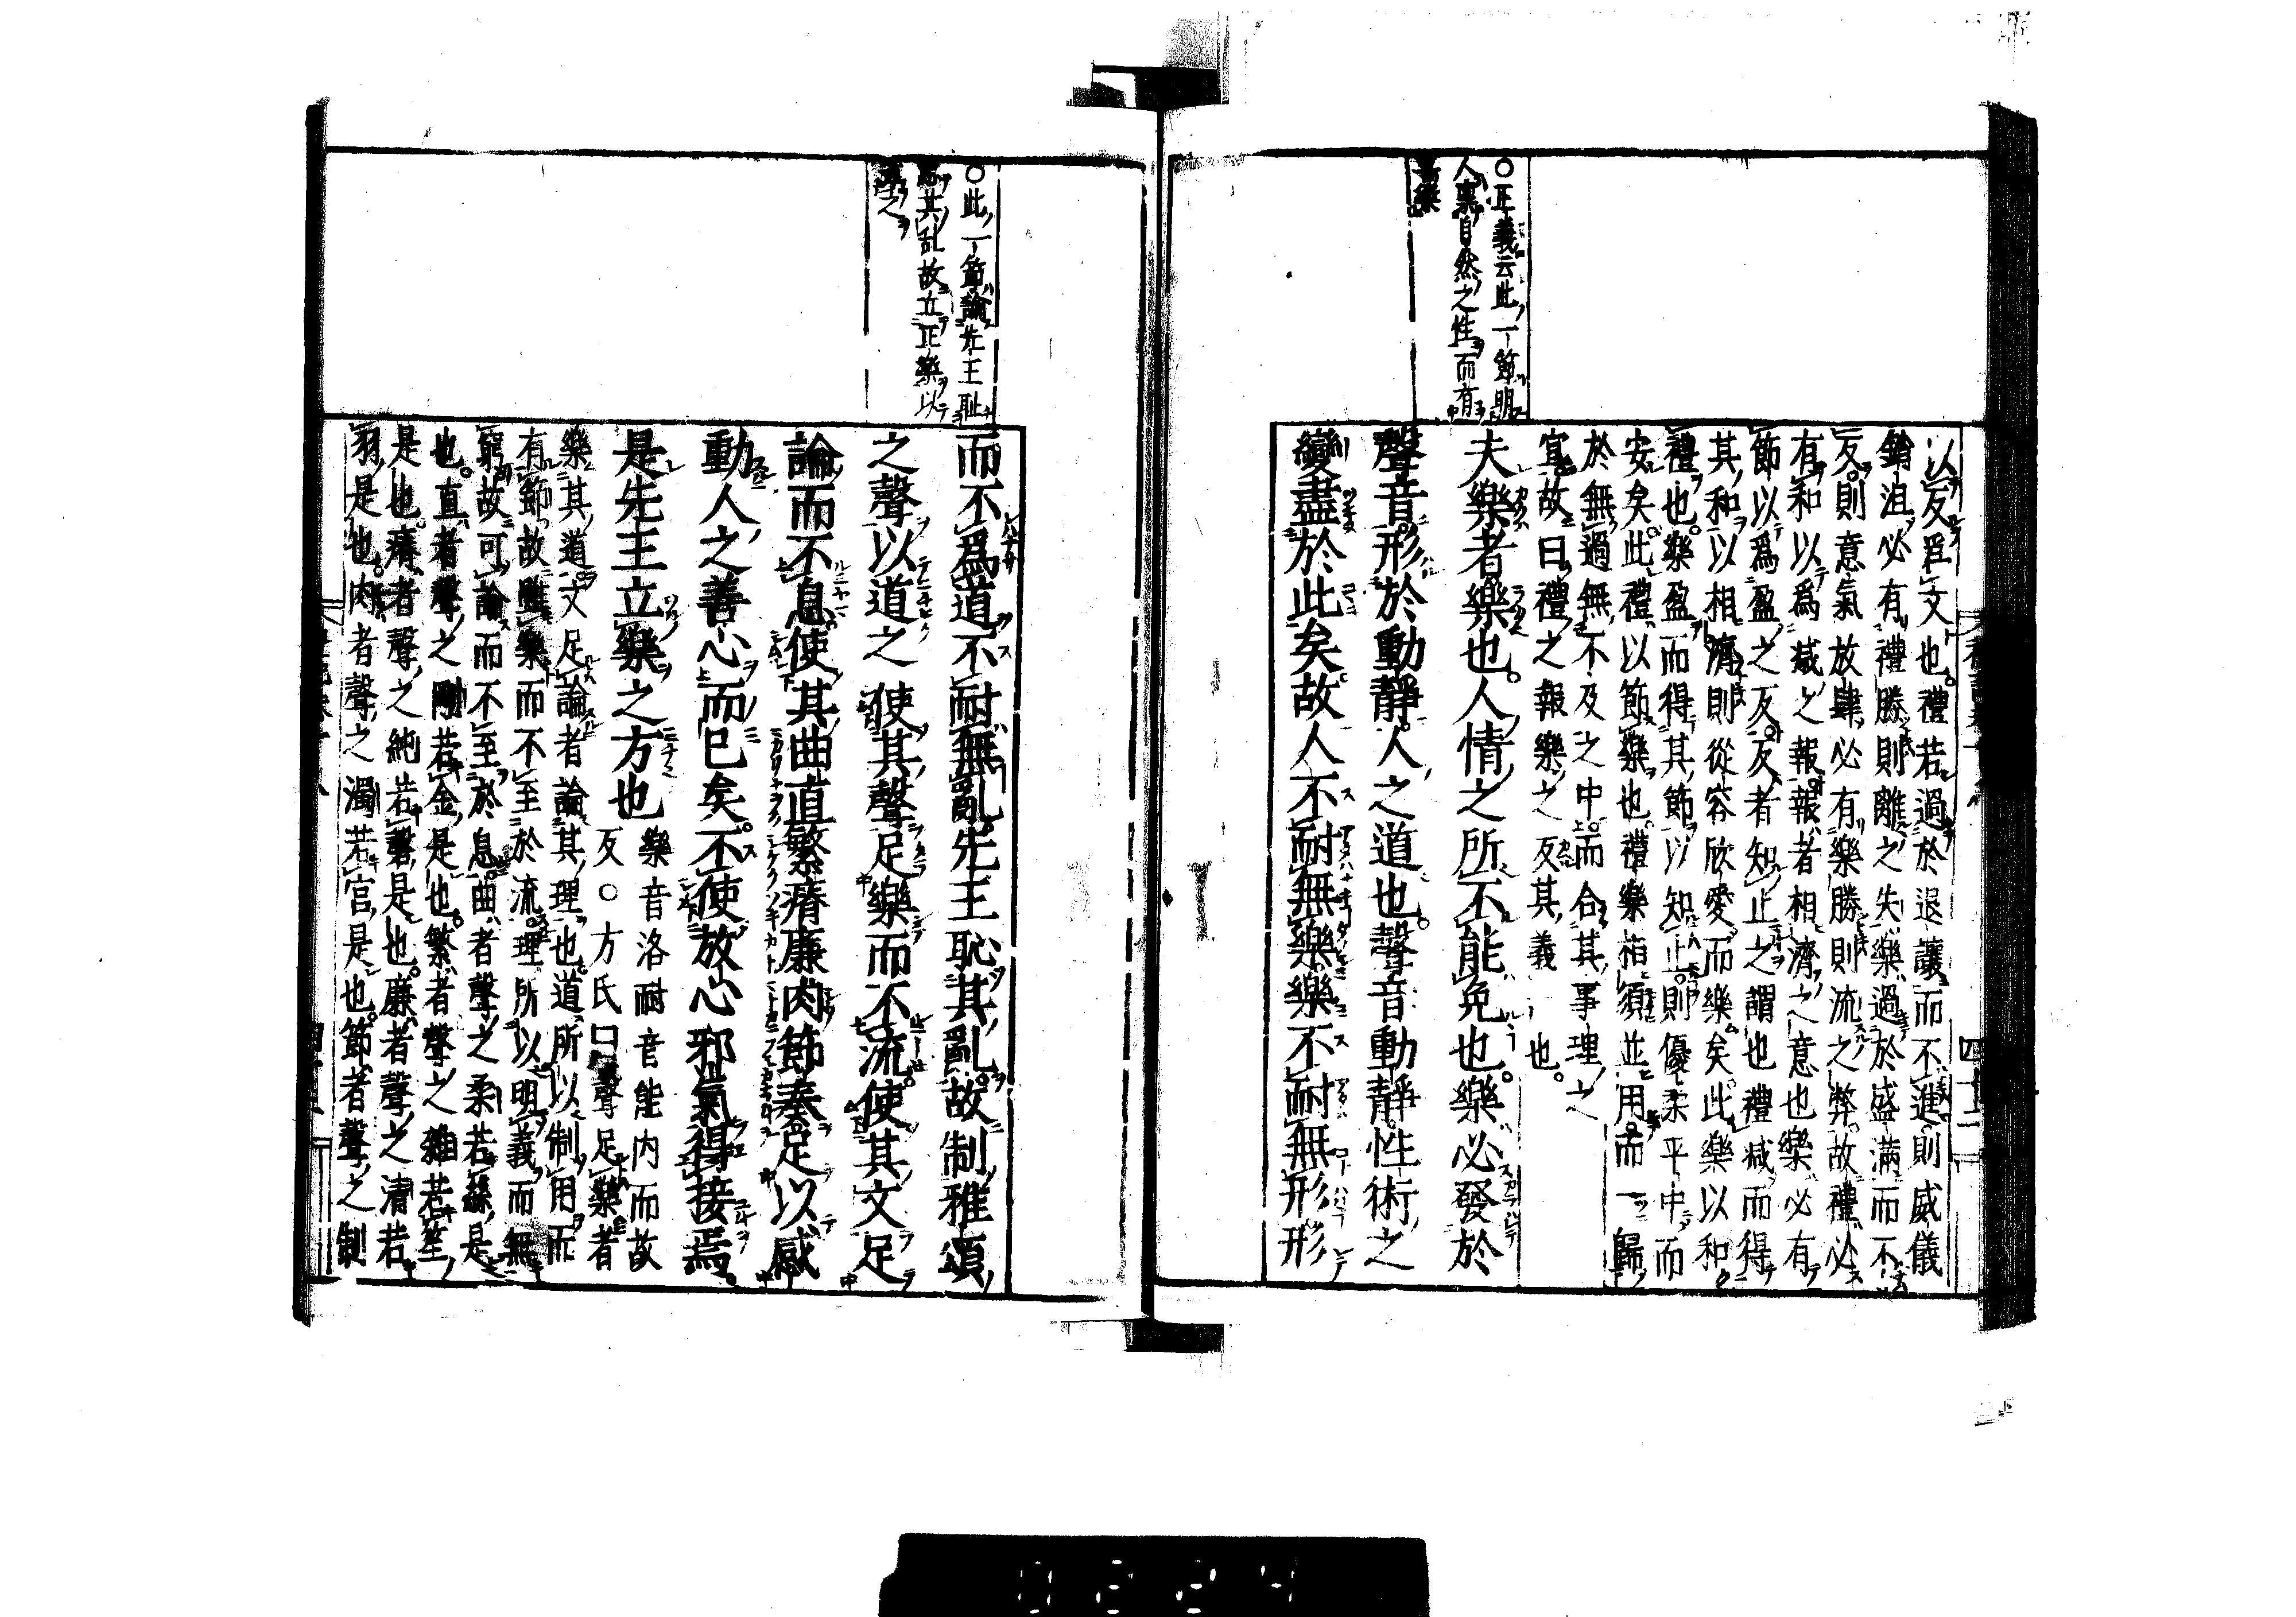 ○正義云此一節明
人稟自然之性而有
喜樂
以反爲文也禮若過於退讓而不進則威儀
銷沮必有禮勝則離之失樂過於盛滿而不
反則意氣放肆必有樂勝則流之弊故禮必
有和以爲減之報報者相濟之意也樂必有
節以爲盈之反反者知止之謂也禮減而得
其和以相濟則從容欣愛而樂矣此樂以和
禮也樂盈而得其節以知止則優柔平中而
安矣此禮以節樂也禮樂相須並用而一歸
於無過無不及之中而合其事理之
宜故曰禮之報樂之反其義一也
夫樂者樂也人情之所不能免也樂必發於
聲音形於動靜人之道也聲音動靜性術之
變盡於此矣故人不耐無樂樂不耐無形形
○此一節論先王耻
其乱故立正樂以
之
而不爲道不耐無亂先王恥其亂故制雅頌
之聲以道之使其聲足樂而不流使其文足
論而不息使其曲直繁瘠廉肉節奏足以感
動人之善心而已矣不使放心邪氣得接焉
是先王立樂之方也
樂音洛耐音能内而故
反○方氏曰聲足樂者
樂其道文足論者論其理也道所以制用而
有節故雖樂而不至於流理所以明義而無
窮故可論而不至於息曲者聲之柔若絲是
也直者聲之剛若金是也繁者聲之雜若笙
是也瘠者聲之純若磬是也廉者聲之清若
羽是也肉者聲之濁若宮是也節者聲之制